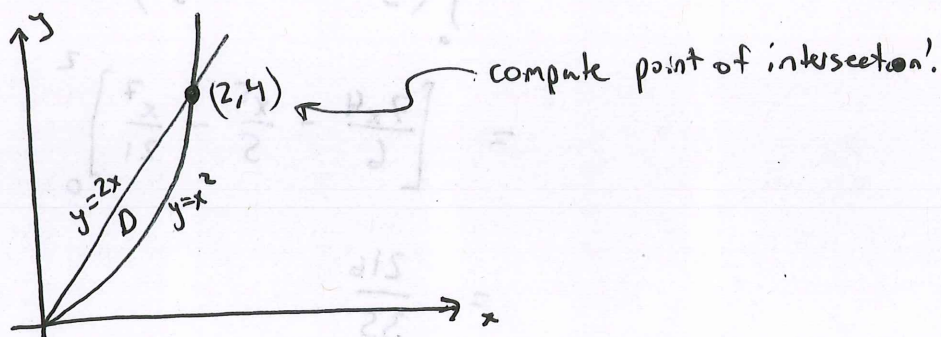 y
compute point of intersection!
(2,4)
y=2x
D
y=x²
x